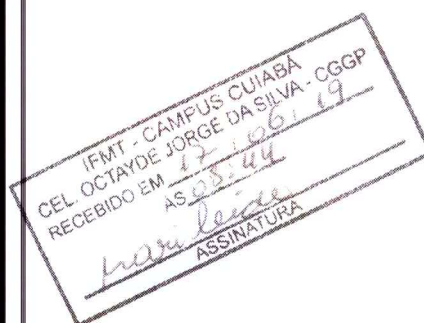 IFMT - CAMPUS CUIABÁ
CEL. OCTAYDE JORGE DA SILVA - CGGP
RECEBIDO EM 17 / 06 / 19
ÀS 08:44
ASSINATURA